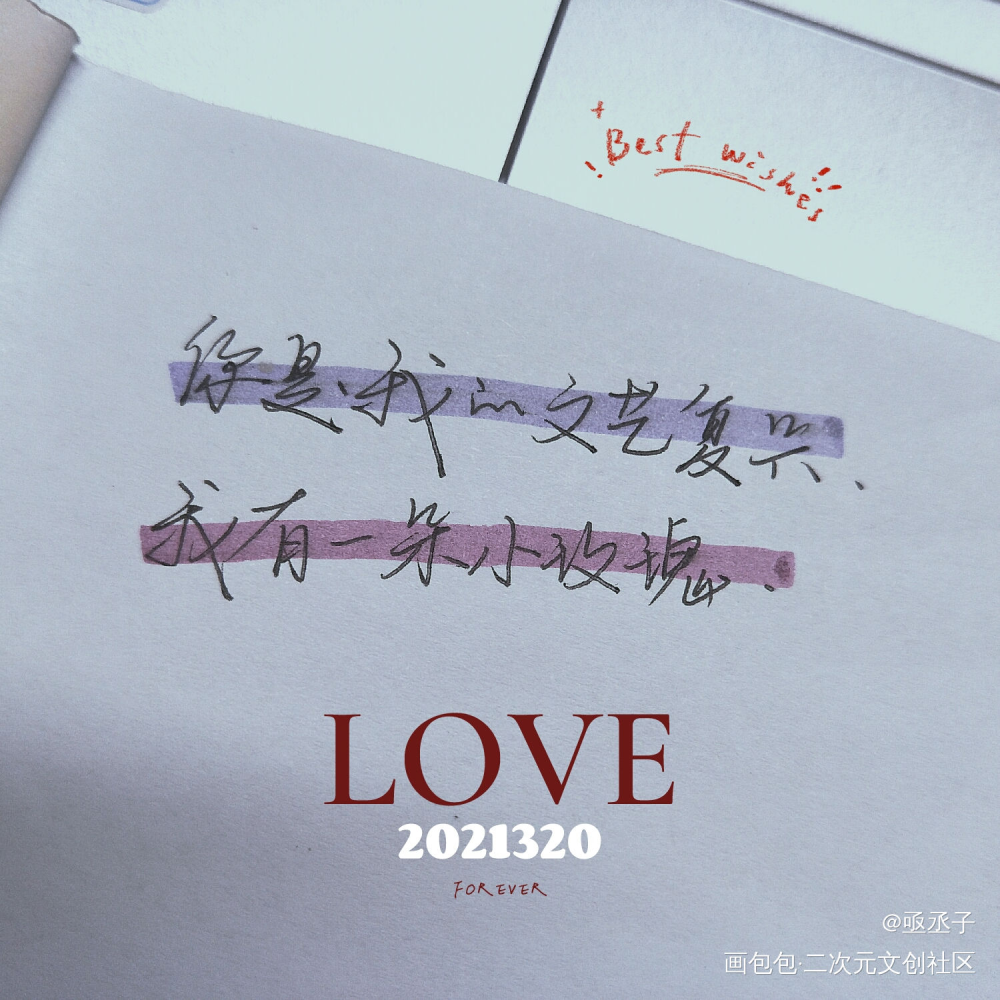 Best wishes
你是我的文艺复兴、
我有一朵小玫瑰.
LOVE
2021320
FOREVER
@亟丞子
画包包·二次元文创社区